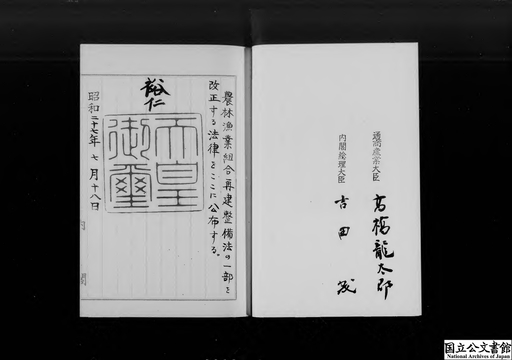 通商産業大臣 高橋龍太郎
内閣総理大臣 吉田茂
農林漁業組合再建整備法の一部を
改正する法律をここに公布する。
裕仁
天皇
御璽
昭和二十七年七月十八日
内閣
国立公文書館
National Archives of Japan